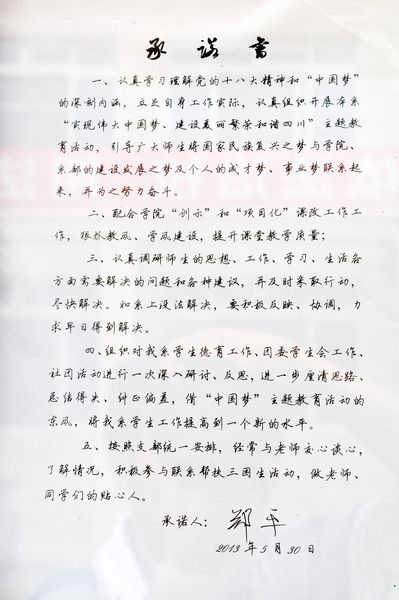 承诺书
一、认真学习理解党的十八大精神和“中国梦”
的深刻内涵，立足自身工作实际，认真组织开展本系
“实现伟大中国梦、建设美丽繁荣和谐四川”主题教
育活动，引导广大师生将国家民族复兴之梦与学院、
系部的建设发展之梦及个人的成才梦、事业梦联系起
来，并为之努力奋斗。
二、配合学院“创示”和“项目化”课改工作工
作，狠抓教风、学风建设，提升课堂教学质量；
三、认真调研师生的思想、工作、学习、生活各
方面需要解决的问题和各种建议，并及时采取行动，
尽快解决。如系上没法解决，要积极反映、协调，力
求早日得到解决。
四、组织对我系学生德育工作、团委学生会工作、
社团活动进行一次深入研讨、反思，进一步厘清思路、
总结得失、纠正偏差，借“中国梦”主题教育活动的
东风，将我系学生工作提高到一个新的水平。
五、按照支部统一安排，经常与老师交心谈心，
了解情况，积极参与联系帮扶三困生活动，做老师、
同学们的贴心人。
承诺人：郑平
2013年5月30日